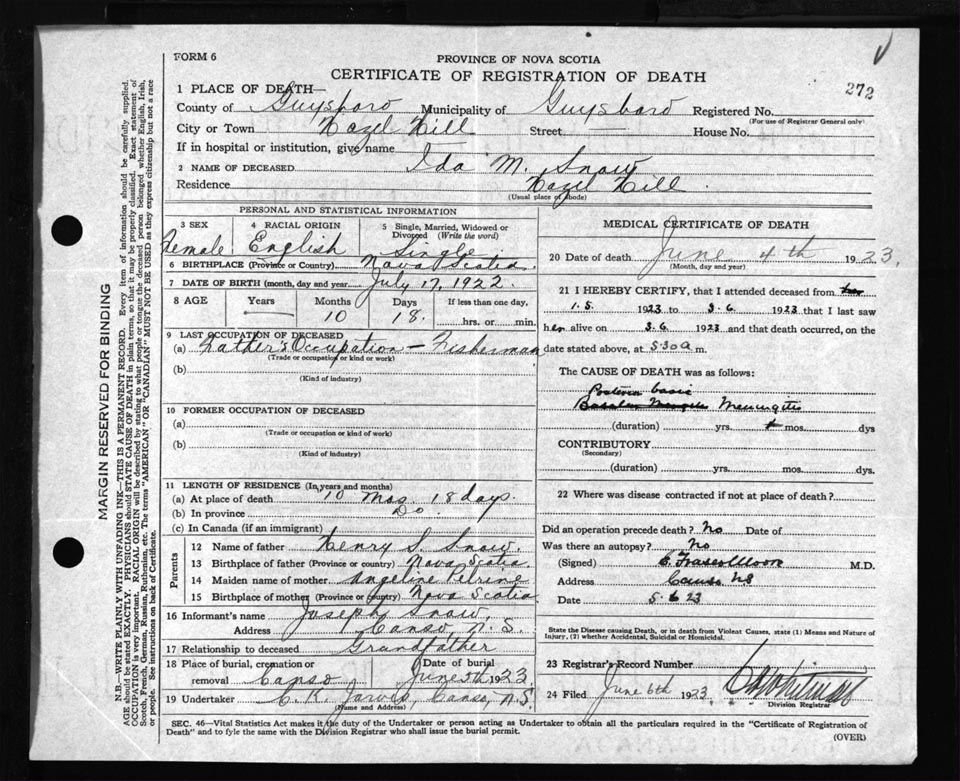 FORM 6
PROVINCE OF NOVA SCOTIA
CERTIFICATE OF REGISTRATION OF DEATH
272
1 PLACE OF DEATH—
County of Guysboro Municipality of Guysboro Registered No.
(For use of Registrar General only)
City or Town Hazel Hill Street — House No.
If in hospital or institution, give name —
2 NAME OF DECEASED Ida M. Snow
Residence Hazel Hill.
(Usual place of abode)
PERSONAL AND STATISTICAL INFORMATION
3 SEX 4 RACIAL ORIGIN 5 Single, Married, Widowed or Divorced (Write the word)
Female English Single
6 BIRTHPLACE (Province or Country) Nova Scotia.
7 DATE OF BIRTH (month, day and year) July 17, 1922.
8 AGE Years Months Days If less than one day,
— 10 18. hrs. or min.
9 LAST OCCUPATION OF DECEASED
(a) Father's Occupation — Fisherman
(Trade or occupation or kind of work)
(b)
(Kind of industry)
10 FORMER OCCUPATION OF DECEASED
(a)
(Trade or occupation or kind of work)
(b)
(Kind of industry)
11 LENGTH OF RESIDENCE (In years and months)
(a) At place of death 10 Mos. 18 days.
(b) In province Do.
(c) In Canada (if an immigrant)
Parents
12 Name of father Henry S. Snow.
13 Birthplace of father (Province or Country) Nova Scotia
14 Maiden name of mother Angeline Pelrine
15 Birthplace of mother (Province or Country) Nova Scotia
16 Informant's name Joseph Snow,
Address Canso N. S.
17 Relationship to deceased Grandfather
18 Place of burial, cremation or removal Canso Date of burial June 5th 1923
19 Undertaker C. K. Jarvis, Canso, N.S.
(Name and Address)
MEDICAL CERTIFICATE OF DEATH
20 Date of death June 4th 1923.
(Month, day and year)
21 I HEREBY CERTIFY, that I attended deceased from her
1.5. 1923 to 3.6. 1923 that I last saw
her alive on 3.6. 1923 and that death occurred, on the
date stated above, at 5.30 a m.
The CAUSE OF DEATH was as follows:
Posterior basic
Meningitis
(duration) yrs. mos. dys
CONTRIBUTORY
(Secondary)
(duration) yrs. mos. dys.
22 Where was disease contracted if not at place of death?
Did an operation precede death? No Date of
Was there an autopsy? No
(Signed) M.D.
Address Canso NS
Date 5.6.23
State the Disease causing Death, or in death from Violent Causes, state (1) Means and Nature of Injury, (2) whether Accidental, Suicidal or Homicidal.
23 Registrar's Record Number
24 Filed June 6th 1923
Division Registrar
SEC. 46—Vital Statistics Act makes it the duty of the Undertaker or person acting as Undertaker to obtain all the particulars required in the "Certificate of Registration of
Death" and to fyle the same with the Division Registrar who shall issue the burial permit.
(OVER)
MARGIN RESERVED FOR BINDING
N.B.—WRITE PLAINLY WITH UNFADING INK—THIS IS A PERMANENT RECORD. Every item of information should be carefully supplied.
AGE should be stated EXACTLY. PHYSICIANS should STATE CAUSE OF DEATH in plain terms, so that it may be properly classified. Exact statement of
OCCUPATION is very important. RACIAL ORIGIN will be described by stating to what people or tongue the deceased person belonged whether English, Irish,
Scotch, French, German, Russian, Ruthenian, etc. The terms "AMERICAN" OR "CANADIAN" MUST NOT BE USED as they express citizenship but not a race
or people. See instructions on back of Certificate.